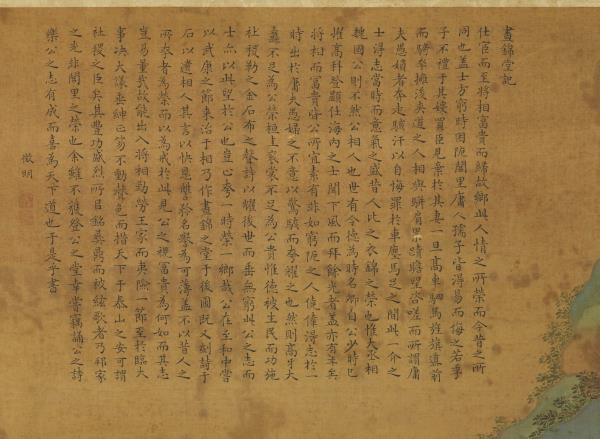 晝錦堂記
仕宦而至將相富貴而歸故鄉此人情之所榮而今昔之所
同也盖士方窮時困阨閭里庸人孺子皆得易而侮之若季
子不禮于其嫂買臣見棄於其妻一旦高車駟馬旌旄導前
而騎卒擁後夾道之人相與駢肩累蹟瞻望咨嗟而所謂庸
夫愚婦者奔走駭汗以自悔罪於車塵馬足之間此一介之
士得志當時而意氣之盛昔人比之衣錦之榮也惟大丞相
魏國公則不然公相人也世有令德為時名卿自公少時已
擢高科登顯仕海内之士聞下風而拜餘光者盖亦有年矣
將相而富貴皆公所宜素有非如窮阨之人僥倖得志於一
時出於庸夫愚婦之不意以驚駭而夸耀之也然則高牙大
纛不足為公榮桓圭袞裳不足為公貴惟德被生民而功施
社稷勒之金石布之聲詩以耀後世而垂無窮此公之志而
士亦以此望於公也豈止夸一時榮一鄉哉公在至和中嘗
以武康之節來治于相乃作晝錦之堂于後圃既又刻詩于
石以遺相人其言以快恩讐矜名譽為可薄盖不以昔人之
所夸者為榮而以為戒於此見公之視富貴為何如而其志
豈易量哉故能出入將相勤勞王家而夷險一節至於臨大
事决大議垂紳正笏不動聲色而措天下于泰山之安可謂
社稷之臣矣其豐功盛烈所以銘彝鼎而被絃歌者乃邦家
之光非閭里之榮也余雖不獲登公之堂幸嘗竊誦公之詩
樂公之志有成而喜為天下道也于是乎書
徵明